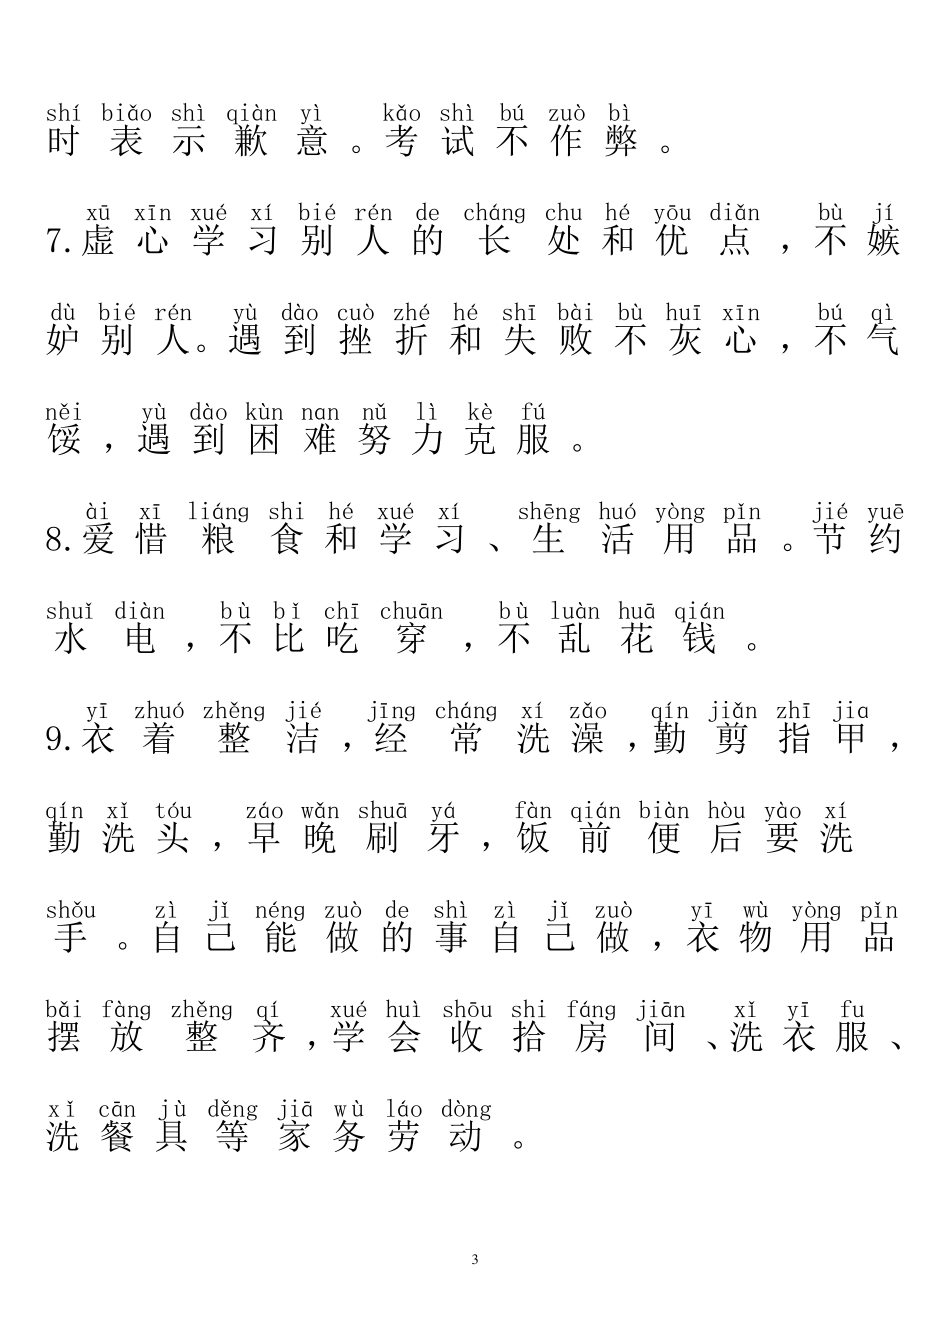 shí biǎo shì qiàn yì kǎo shì bú zuò bì
时表示歉意。考试不作弊。
xū xīn xué xí bié rén de cháng chu hé yōu diǎn bù jí
7.虚心学习别人的长处和优点,不嫉
dù bié rén yù dào cuò zhé hé shī bài bù huī xīn bú qì
妒别人。遇到挫折和失败不灰心,不气
něi yù dào kùn nan nǔ lì kè fú
馁,遇到困难努力克服。
ài xī liáng shi hé xué xí shēng huó yòng pǐn jié yuē
8.爱惜粮食和学习、生活用品。节约
shuǐ diàn bù bǐ chī chuān bù luàn huā qián
水电,不比吃穿,不乱花钱。
yī zhuó zhěng jié jīng cháng xí zǎo qín jiǎn zhī jia
9.衣着整洁,经常洗澡,勤剪指甲,
qín xǐ tóu záo wǎn shuā yá fàn qián biàn hòu yào xí
勤洗头,早晚刷牙,饭前便后要洗
shǒu zì jǐ néng zuò de shì zì jǐ zuò yī wù yòng pǐn
手。自己能做的事自己做,衣物用品
bǎi fàng zhěng qí xué huì shōu shi fáng jiān xǐ yī fu
摆放整齐,学会收拾房间、洗衣服、
xǐ cān jù děng jiā wù láo dòng
洗餐具等家务劳动。
3